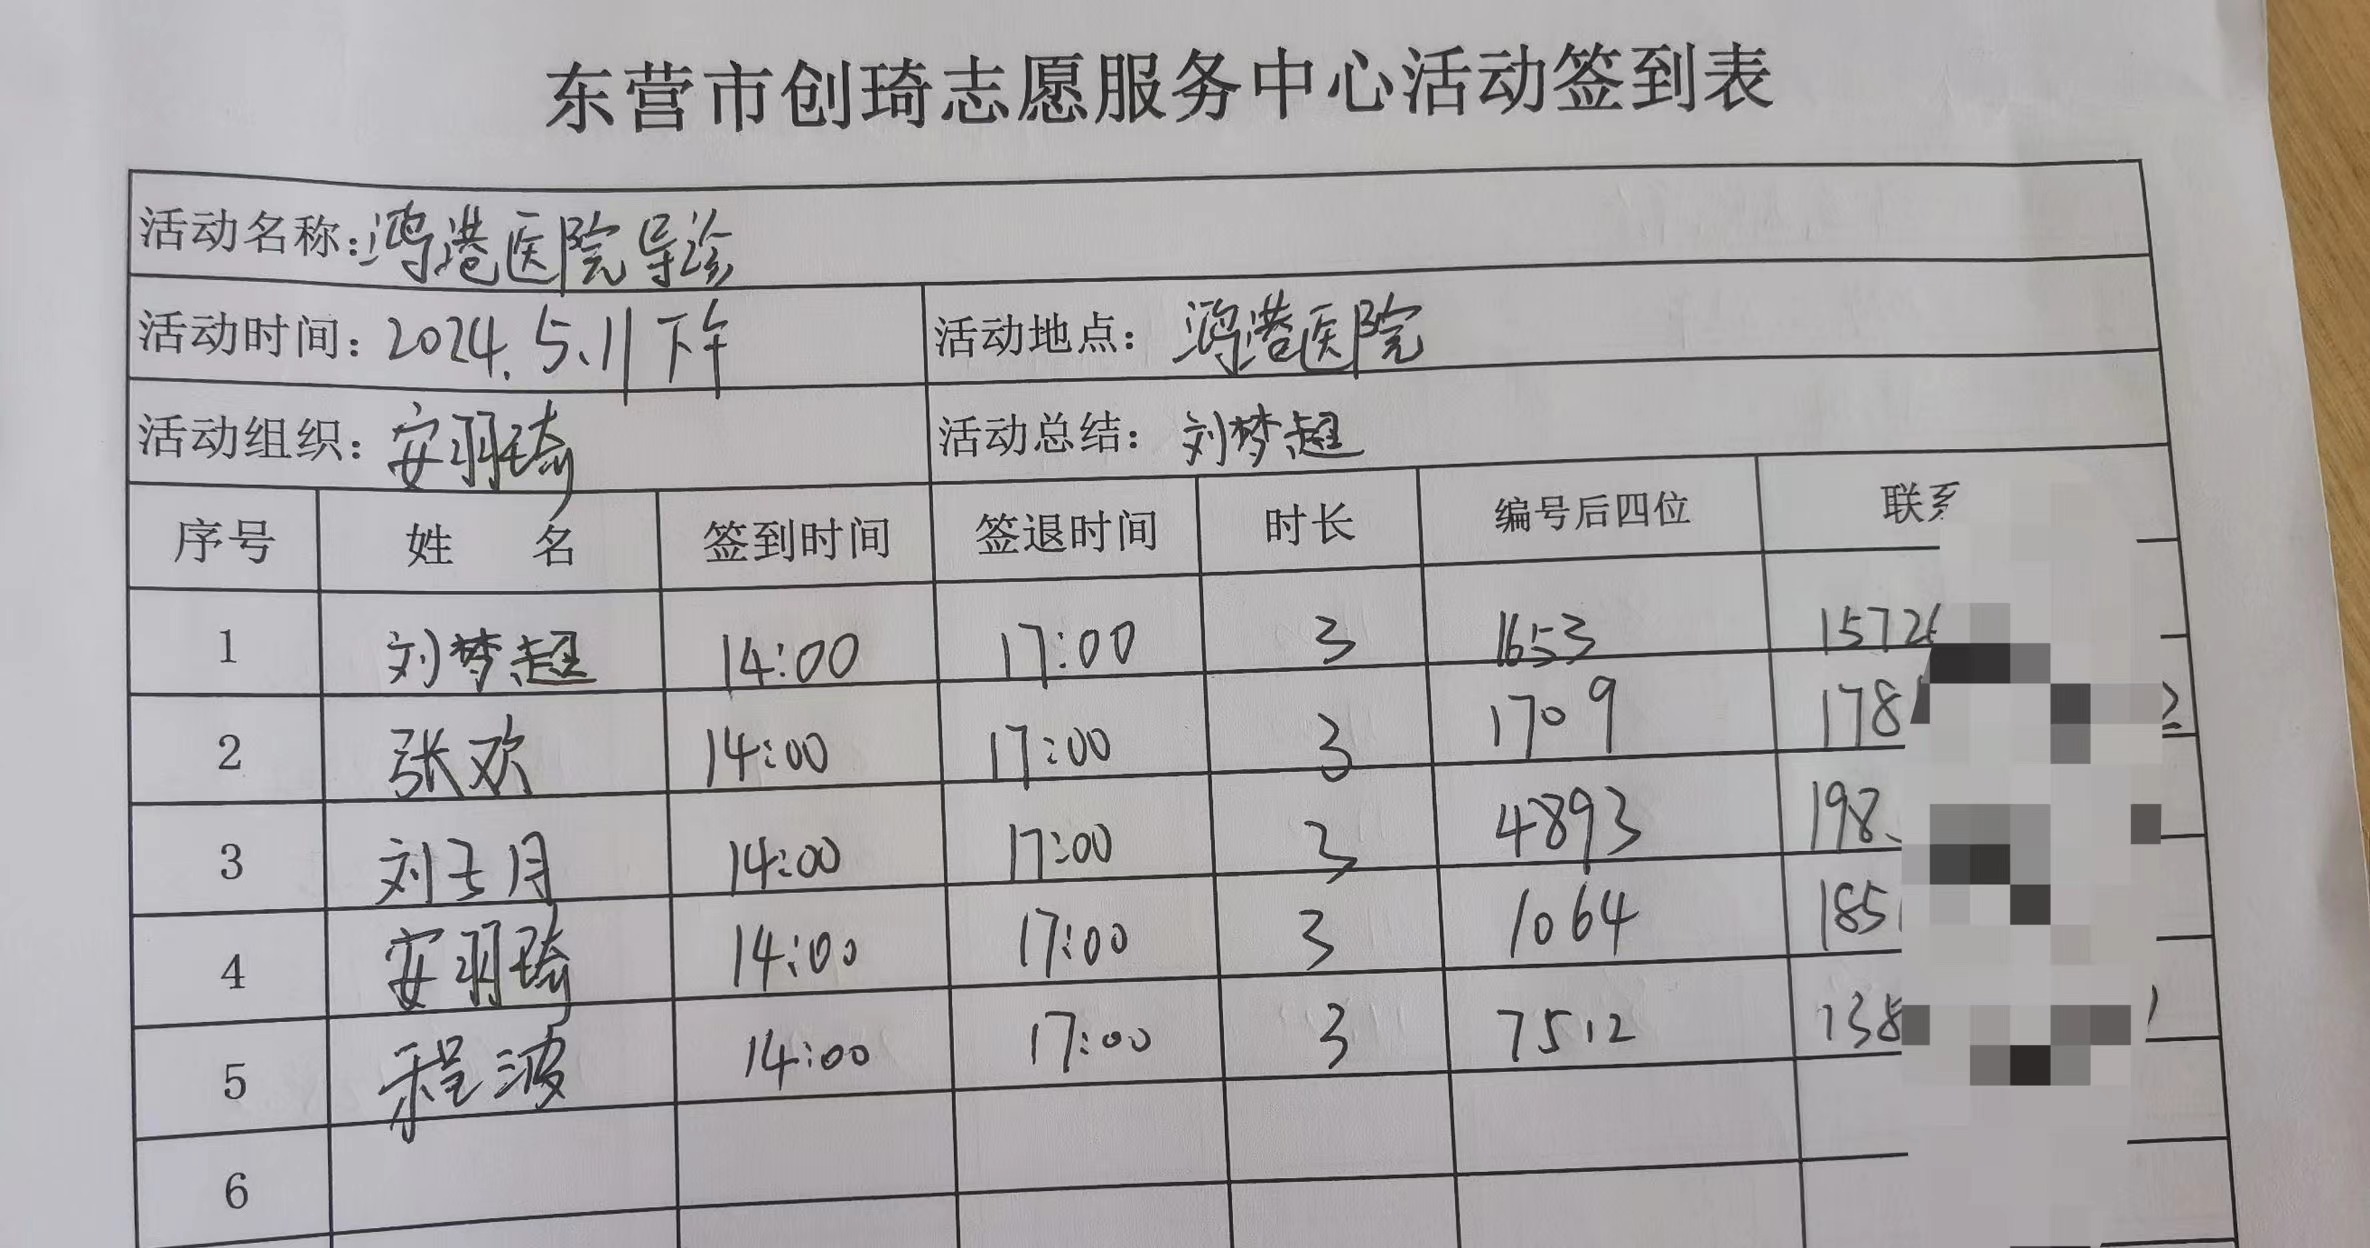 东营市创琦志愿服务中心活动签到表
活动名称:鸿港医院导诊
活动时间: 2024.5.11下午 活动地点: 鸿港医院
活动组织: 安羽琦 活动总结: 刘梦超
序号 姓 名 签到时间 签退时间 时长 编号后四位 联系
1 刘梦超 14:00 17:00 3 1653 1572
2 张欢 14:00 17:00 3 1709 178 2
3 刘玉月 14:00 17:00 3 4893 198
4 安羽琦 14:00 17:00 3 1064 185
5 程波 14:00 17:00 3 7512 138 1
6